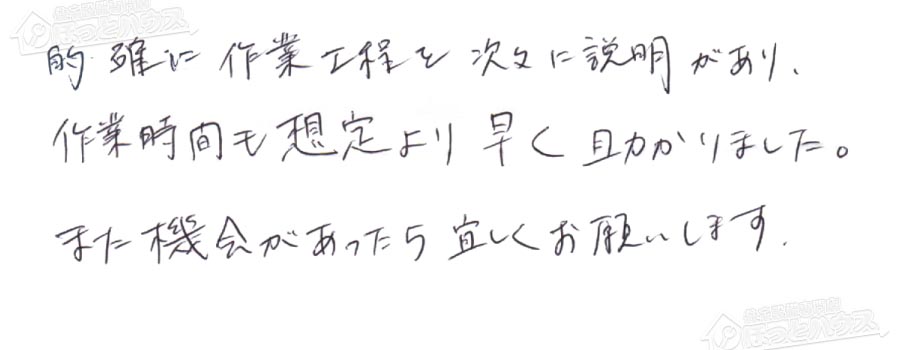 住宅設備専門館
ほっとハウス
的確に作業工程を次々に説明があり、
作業時間も想定より早く助かりました。
また機会があったら宜しくお願いします.
住宅設備専門館
ほっとハウス